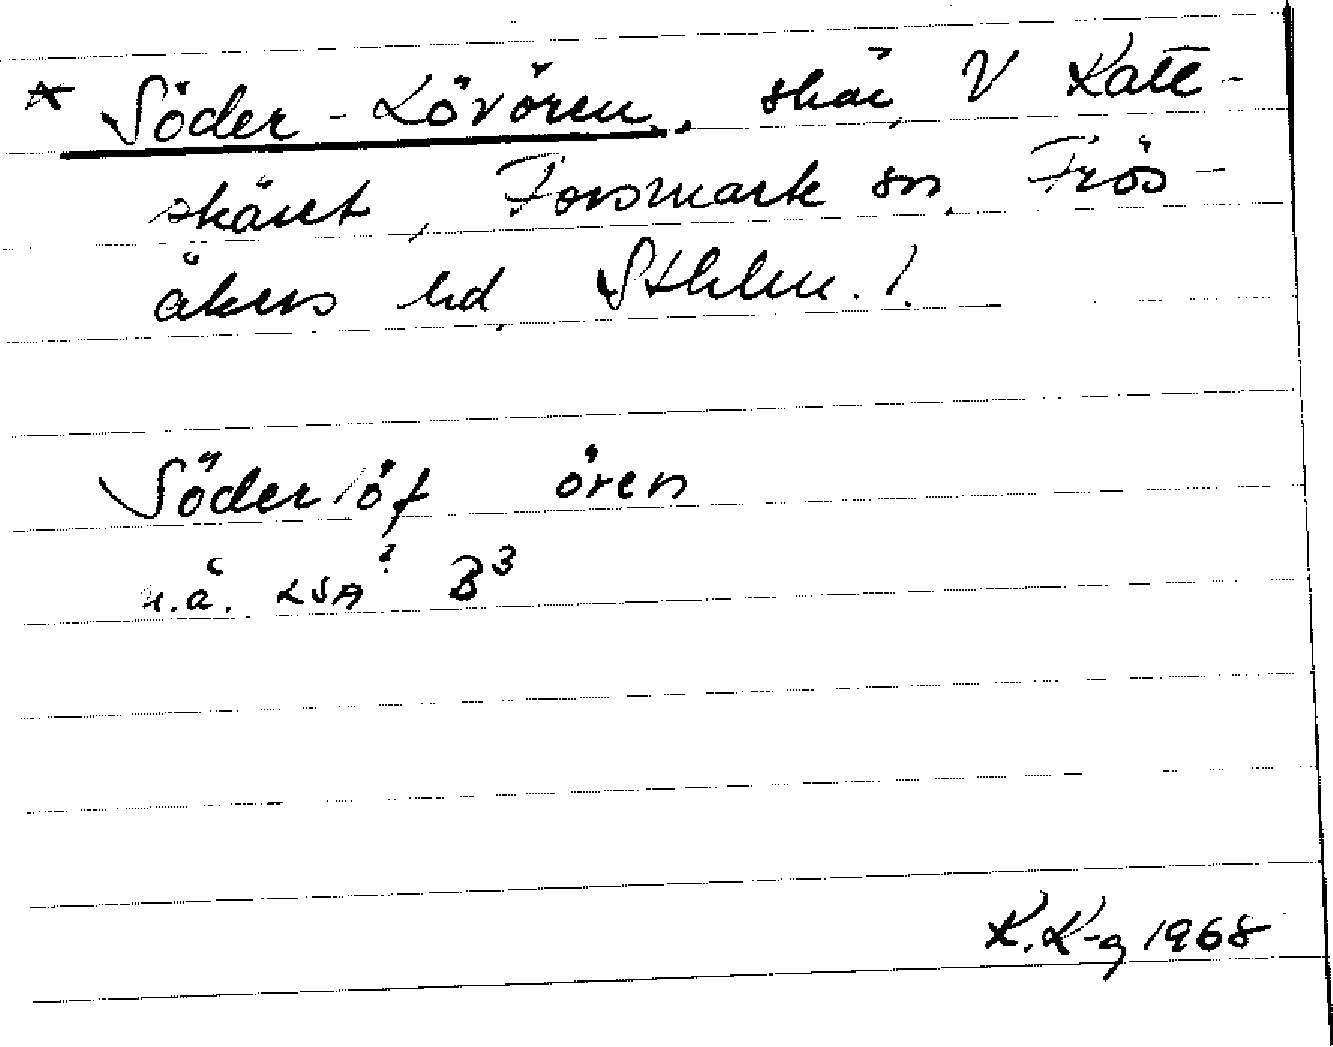 * Söder-Lövören, skär, V Katt-
skäret, Forsmark sn, Frös-
åkers hd, Sthlm. l.
Söderlöf ören
u.å. LSA B3
K.K-g 1968